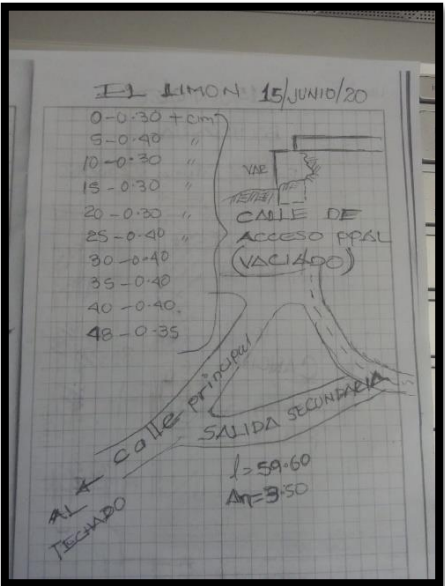 EL LIMON 15/JUNIO/20
0-0.30 + cim
5-0.40 "
10-0.30 "
15-0.30 "
20-0.30 "
25-0.40 "
30-0.40
35-0.40
40-0.40
48-0.35
VAR
CALLE DE
ACCESO PPAL
(VACIADO)
calle principal
SALIDA SECUNDARIA
l=59.60
An=3.50
AL
TECHADO